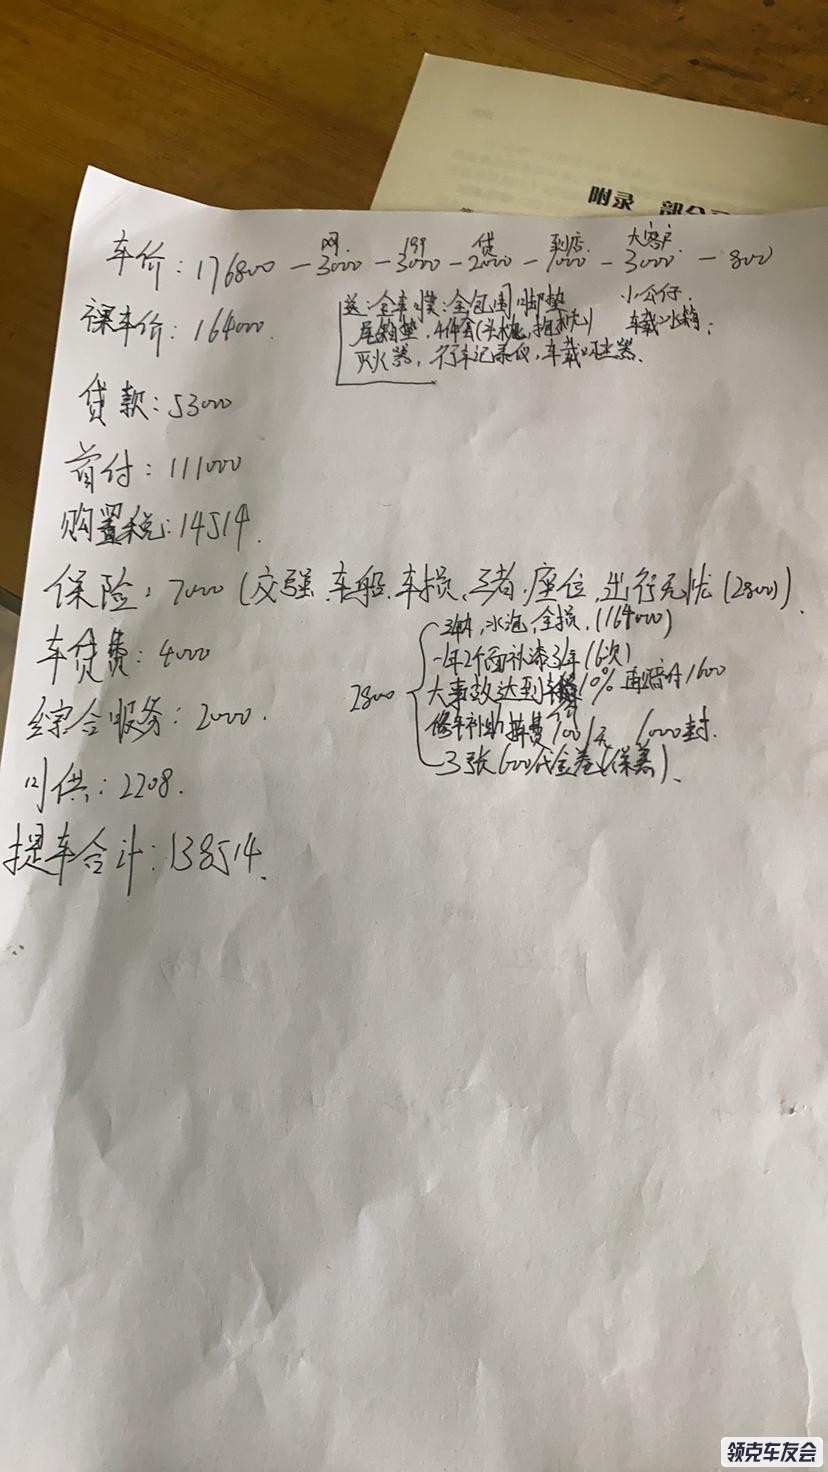 附录 部分
网 贷 到店 大客户
车价：176800 － 3000 － 3000 － 2000 － 1000 － 3000 － 800
送：全车膜：全包围脚垫 小公仔
裸车价：164000. 尾箱垫，4件套(头枕，抱枕) 车载冰箱；
灭火器，行车记录仪，车载吸尘器.
贷款：53000
首付：111000
购置税：14514.
保险：7000 (交强.车船.车损.三者.座位.出行无忧(2800)).
水泡，全损.(164000)
车贷费：4000
一年2个面补漆3年(6次)
2800 大事故达到 10% 再赔付1600
综合服务：2000.
修车补助 费100/天 1000封.
3张600代金卷(保养).
月供：2208.
提车合计：138514.
领克车友会